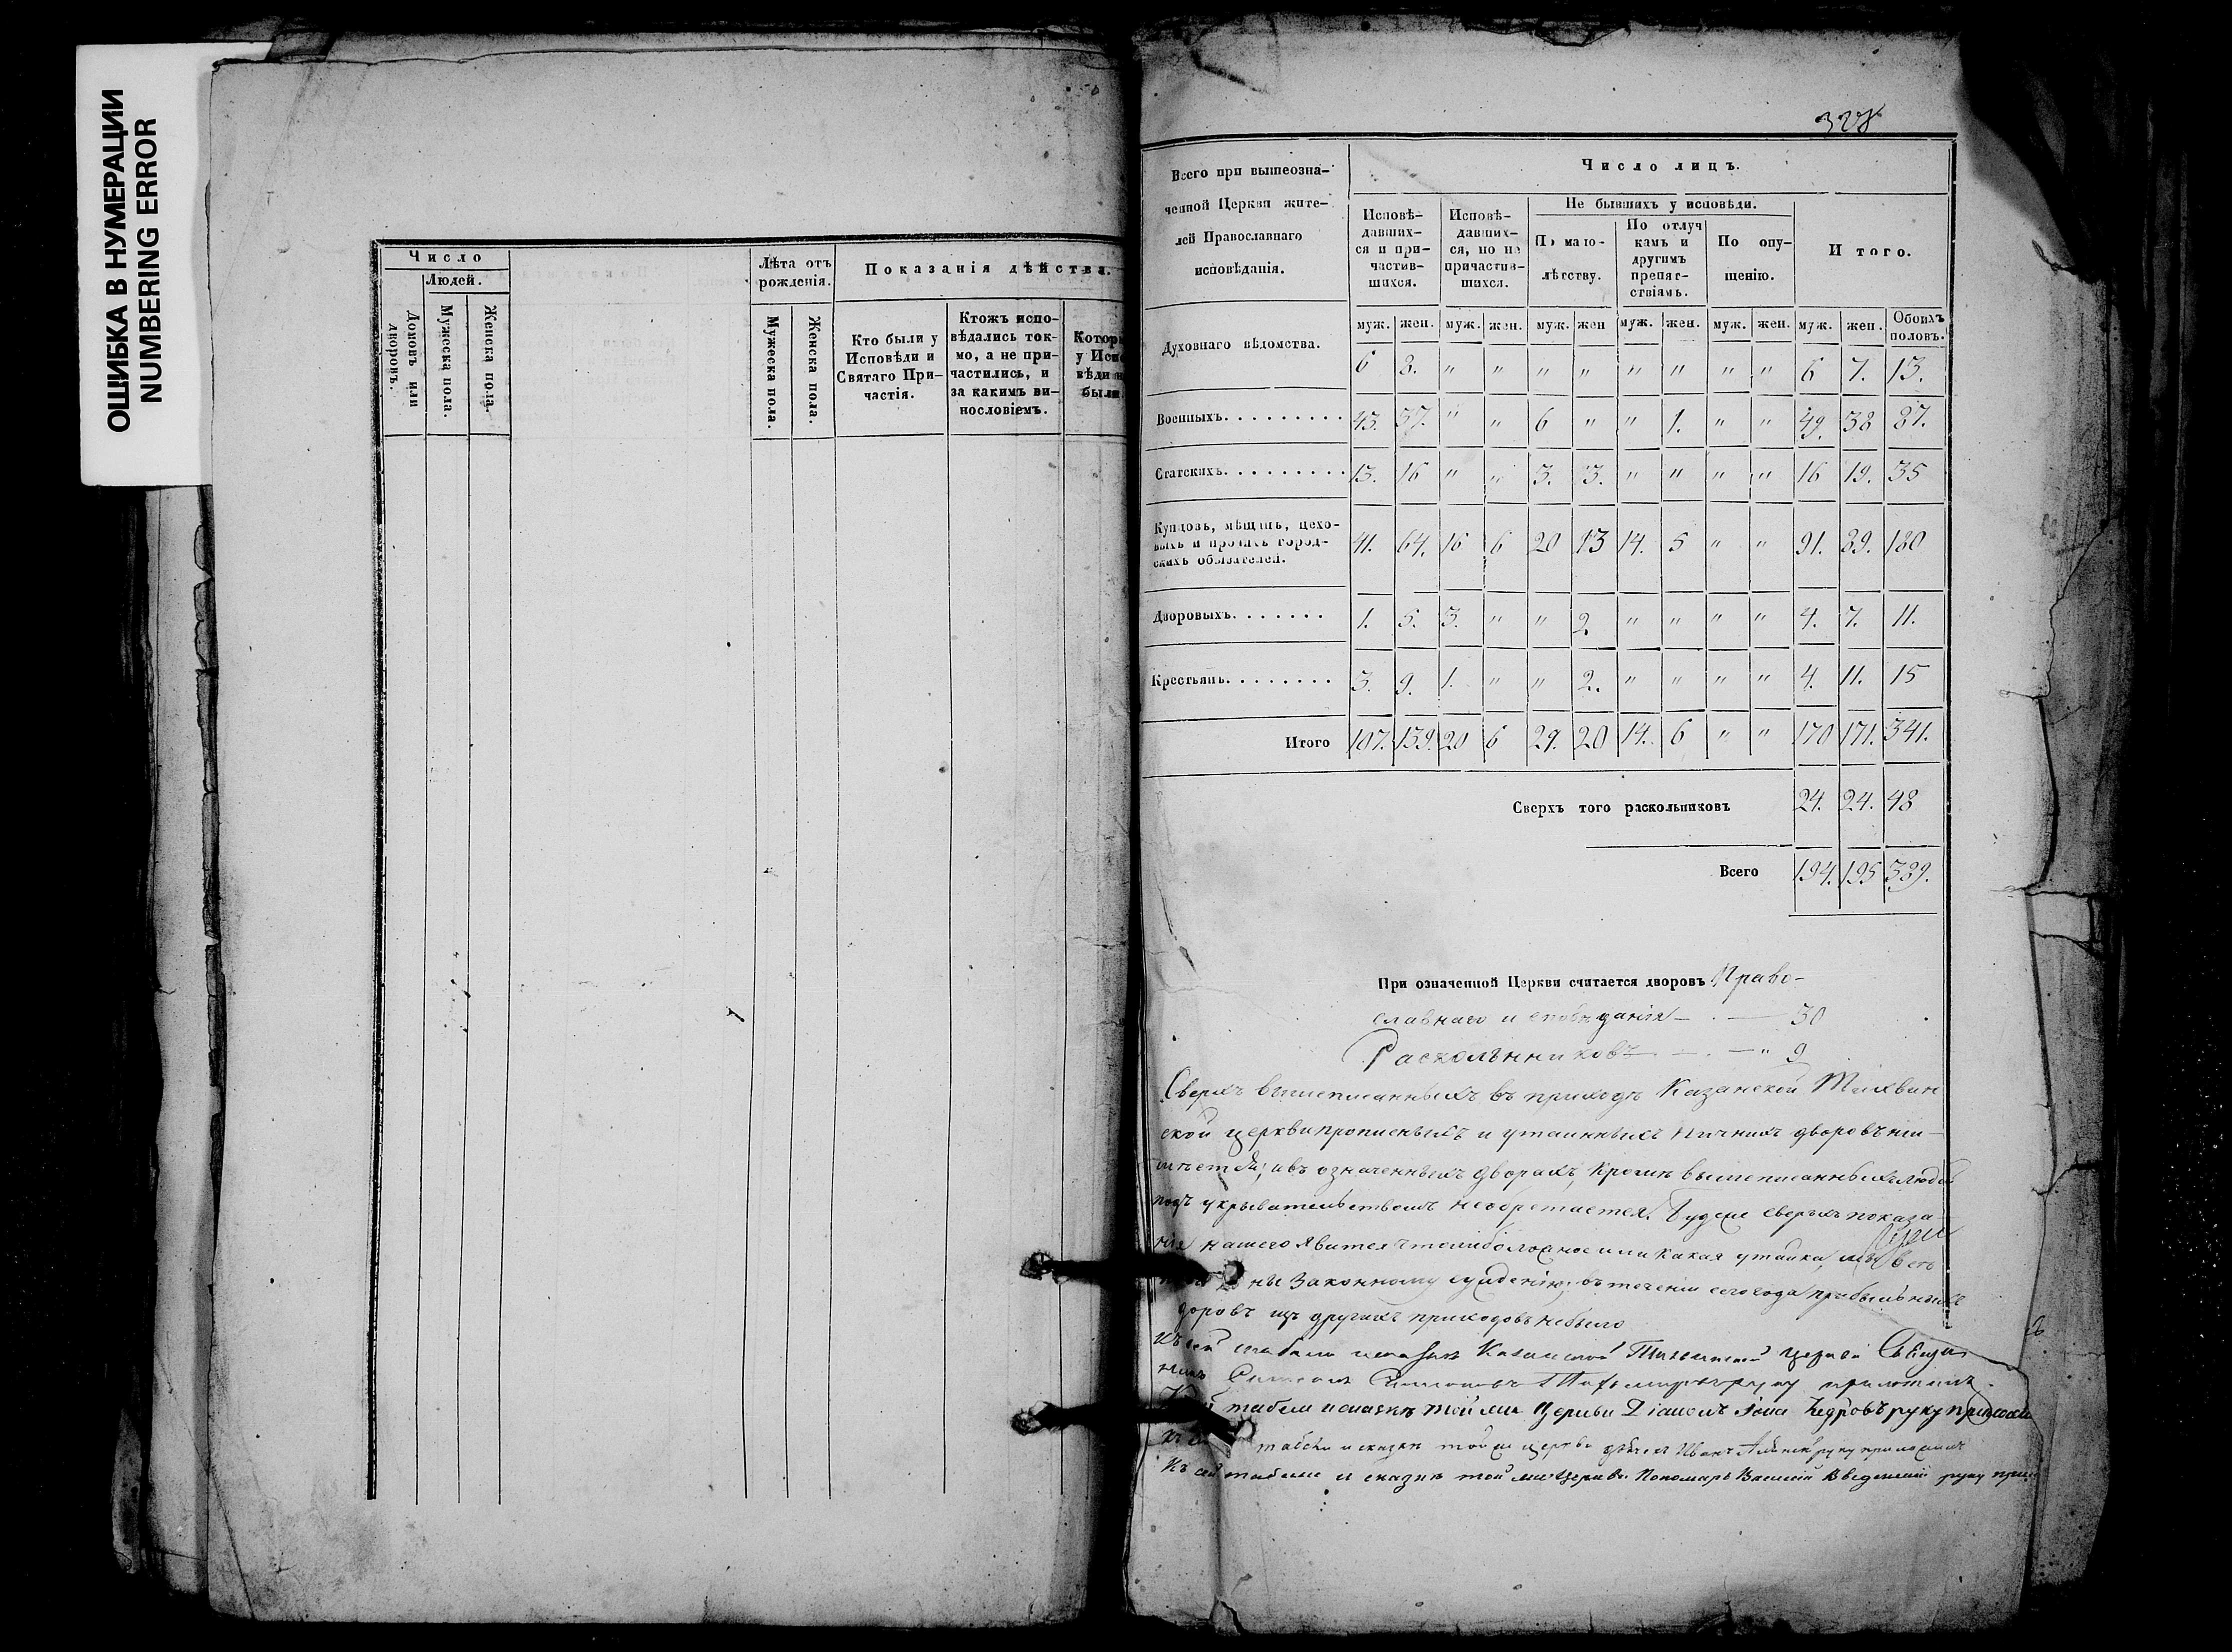 ОШИБКА В НУМЕРАЦИИ
NUMBERING ERROR
Число
Людей.
Домовъ или дворовъ.
Мужеска пола.
Женска пола.
Лѣта отъ рожденія.
Мужеска пола.
Женска пола.
Показанія дѣйства.
Кто были у Исповѣди и Святаго Причастія.
Ктожъ исповѣдались токмо, а не причастились, и за какимъ винословіемъ.
были
328
Всего при вышеозна-
ченной Церкви жите-
лей Православнаго
исповѣданія.
Число лицъ.
Исповѣ-
давших-
ся и при-
частив-
шихся.
Исповѣ-
давших-
ся, но не
причастив-
шихся.
Не бывшихъ у исповѣди.
По мало-
лѣтству.
По отлуч
камъ и
другимъ
препят-
ствіямъ.
По опу-
щенію.
Итого.
муж. жен. муж. жен. муж. жен муж. жен. муж. жен. муж. жен. Обоихъ половъ.
Духовнаго вѣдомства. 6 8. " " " " " " " " 6 7. 13.
Военныхъ. . . . . . . . . 43. 37. " " 6 " " 1. " " 49. 38 87.
Статскихъ. . . . . . . . . 13. 16 " " 3. 3. " " " " 16 19. 35
Купцовъ, мѣщанъ, цехо-
выхъ и прочихъ город-
скихъ обывателей. 41. 64. 16 6 20 13 14. 5 " " 91. 89. 180
Дворовыхъ. . . . . . . 1. 5. 3. " " 2. " " " " 4. 7. 11.
Крестьянъ. . . . . . . . 3. 9. 1. " " 2. " " " " 4. 11. 15
Итого 107. 139. 20 6 29. 20 14. 6 " " 170 171. 341.
Сверхъ того раскольниковъ 24. 24. 48
Всего 194. 195 389.
При означенной Церкви считается дворовъ Право-
славнаго исповѣданія — 30
Раскольниковъ — " 9
Сверхъ вышеписанныхъ въ приходѣ Казанской Тихвин
ской церкви прописныхъ и утаенныхъ дворовъ
въ означенныхъ дворахъ, кромѣ вышеписанныхъ людей
подъ укрывательствомъ необретается. Будеже сверхъ показа
нія нашего явится или какая утайка, мы
законному сужденію; въ теченіи сего года прибыльныхъ
дворовъ изъ другихъ приходовъ небыло
Къ сей табели и сказкѣ Казанской Тихвинской церкви Священ
никъ руку приложилъ.
табели и сказкѣ той же Церкви Діаконъ Іона Кедровъ руку приложи
табели и сказкѣ той же церкви Иванъ руку приложилъ
Къ сей табели и сказкѣ той же Церкви Пономарь Василій Введенскій руку прил